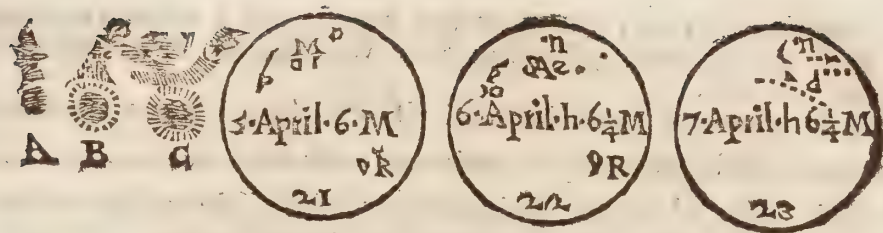 A B C
M
a r
b
5·April·6·M
R
21
n
Ae
g
6·April·h·6¼M
R
22
n
d
7·April·h 6¼M
23